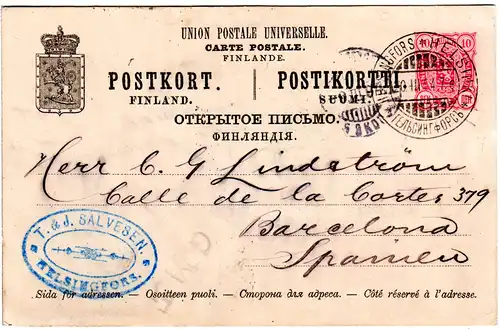 UNION POSTALE UNIVERSELLE.
CARTE POSTALE.
FINLANDE.
POSTKORT. | POSTIKORTTI
FINLAND.
ОТКРЫТОЕ ПИСЬМО.
ФИНЛЯНДІЯ.
10 10
HELSINGFORS
ГЕЛЬСИНГФОРСЪ
Herr C. G Lindström
Calle de la Cortes 379
Barcelona
Spanien
T. & J. SALVESEN.
HELSINGFORS.
Sida för adressen. — Osoitteen puoli. — Сторона для адреса. — Côté réservé à l'adresse.